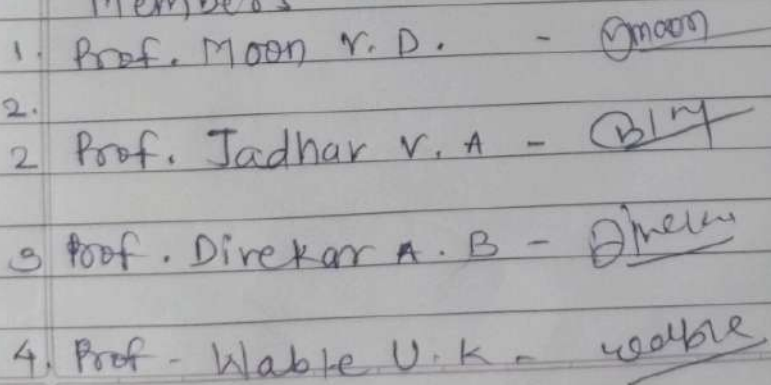 Members
1. Prof. Moon V. D. - Vmoon
2.
2 Prof. Jadhav V. A -
3 Prof. Direkar A. B -
4. Prof - Wable U. K - wable